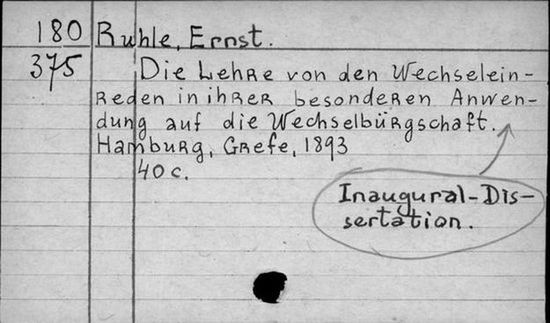 180 Ruhle, Ernst.
375 Die Lehre von den Wechselein-
reden in ihrer besonderen Anwen-
dung auf die Wechselbürgschaft.
Hamburg, Grefe, 1893
40 c.
Inaugural-Dis-
sertation.